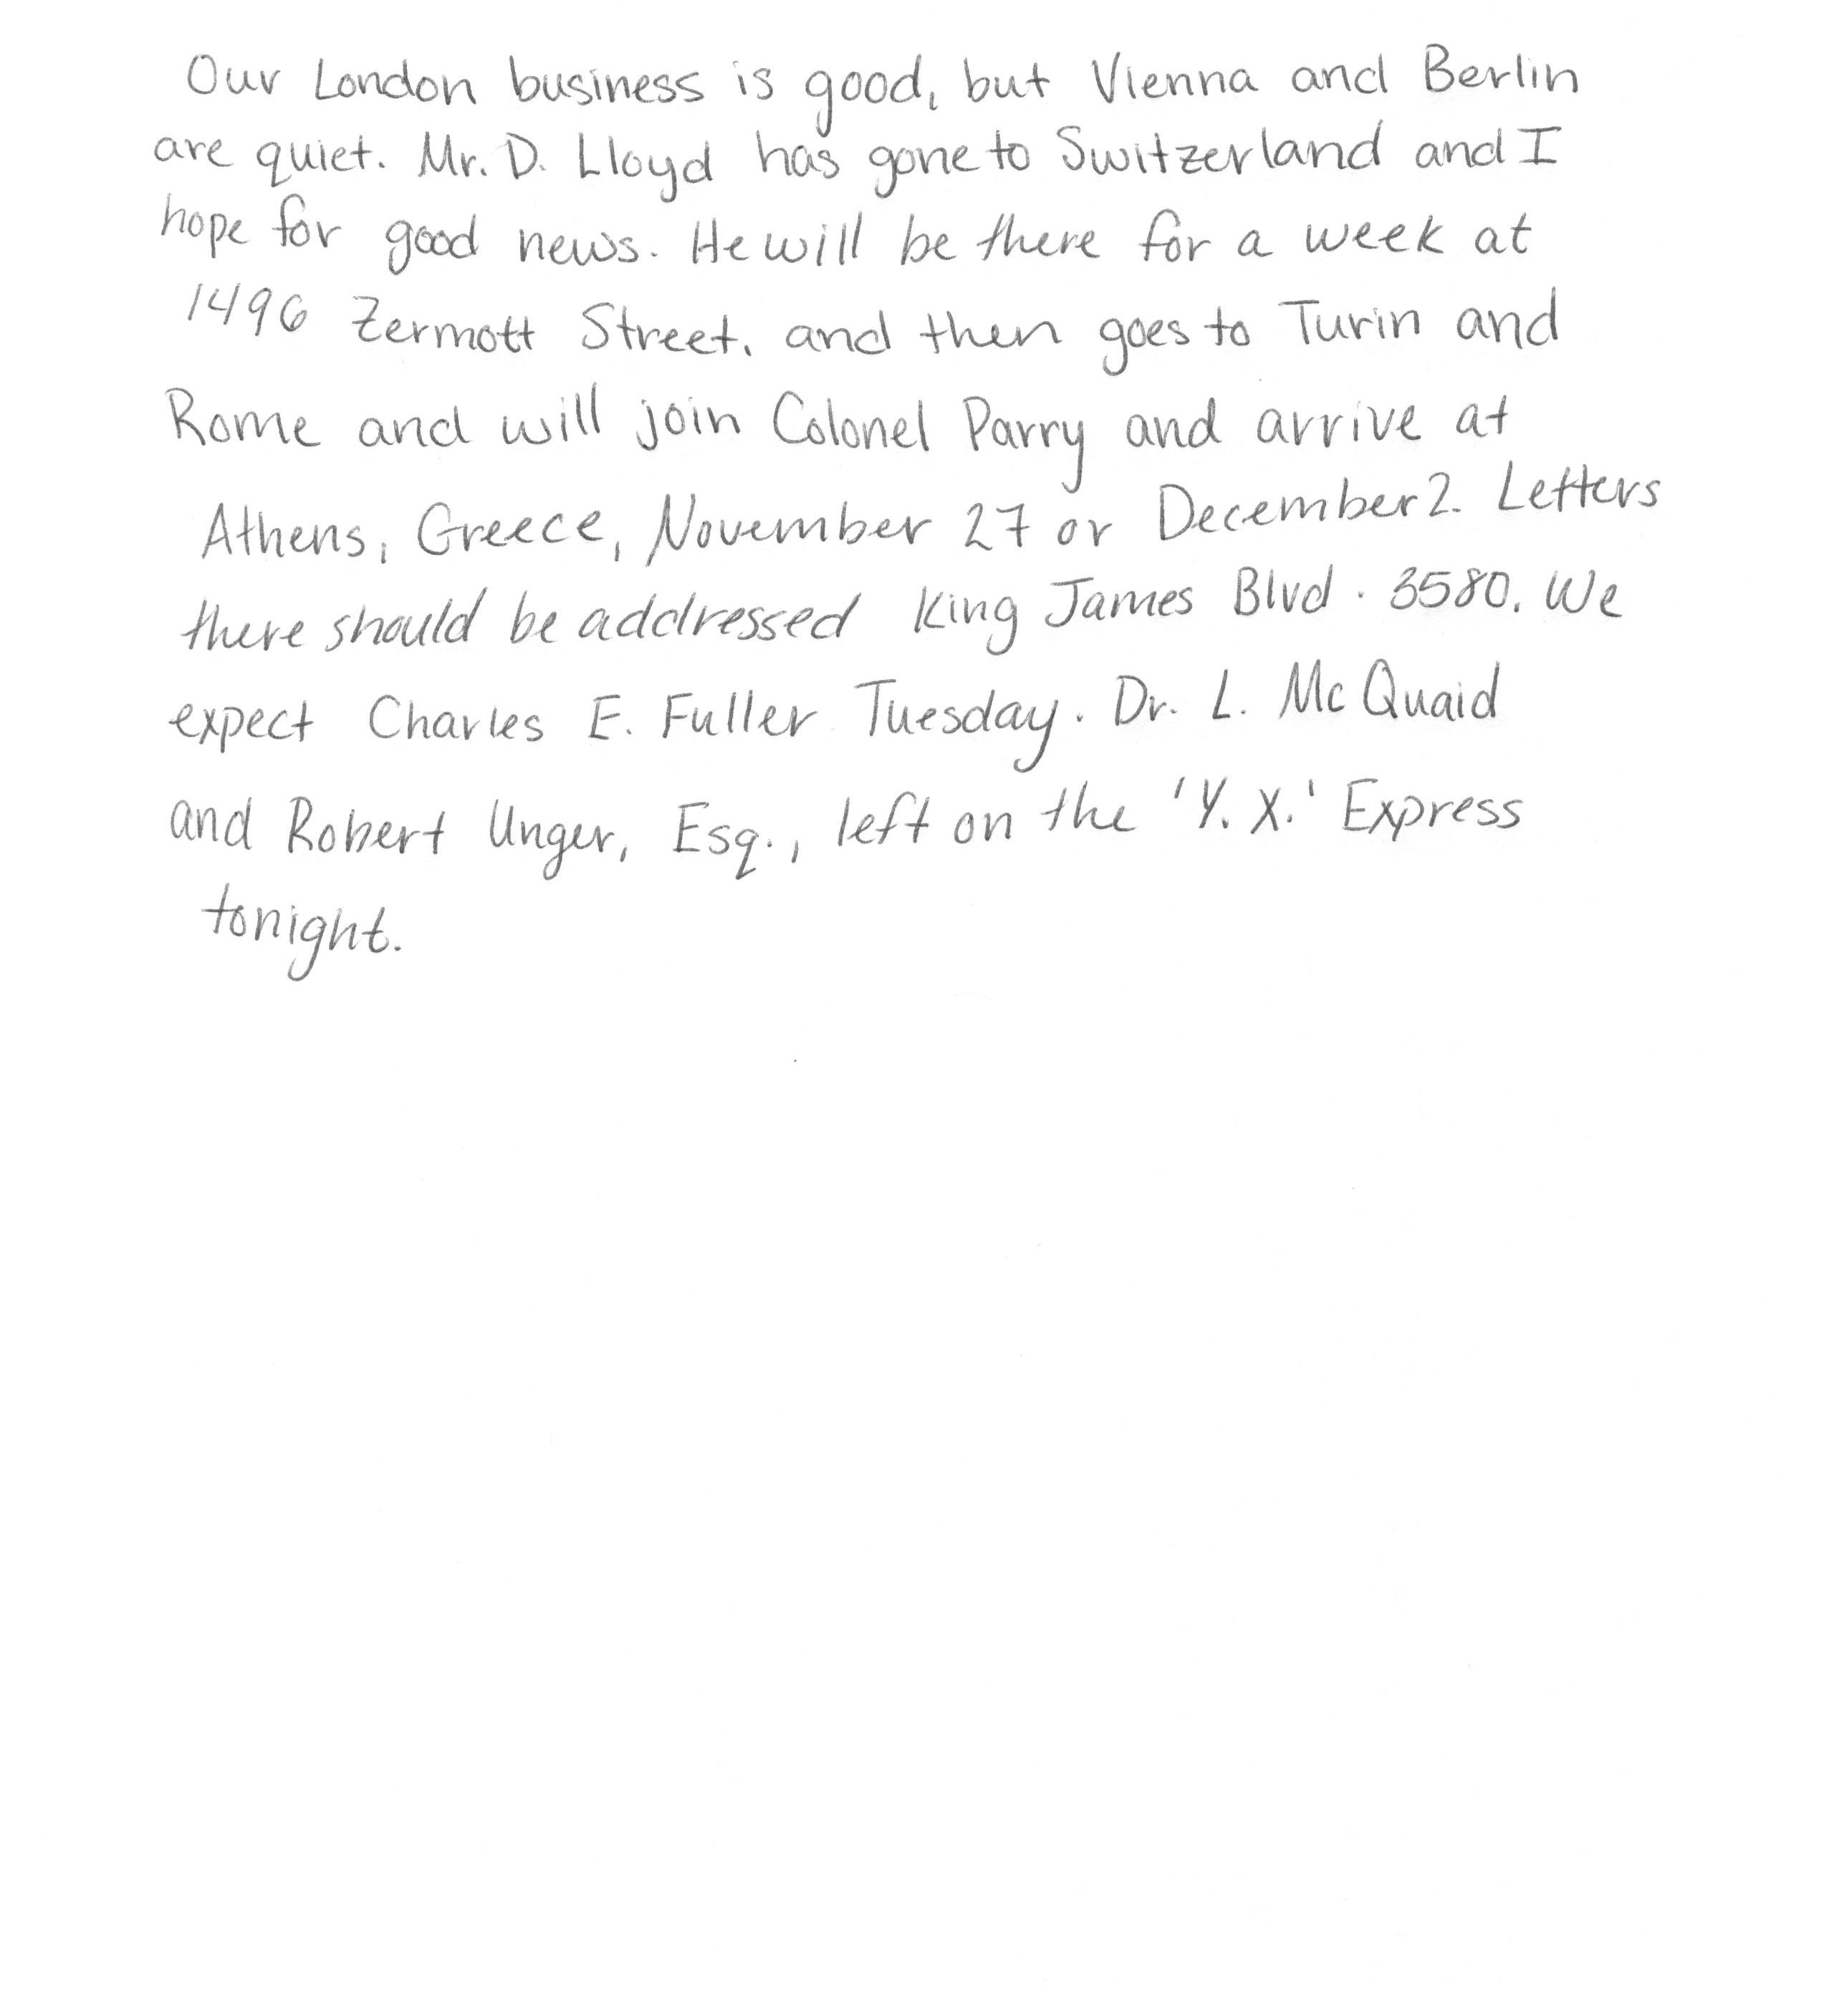 Our London business is good, but Vienna and Berlin
are quiet. Mr. D. Lloyd has gone to Switzerland and I
hope for good news. He will be there for a week at
1496 Zermott Street, and then goes to Turin and
Rome and will join Colonel Parry and arrive at
Athens, Greece, November 27 or December 2. Letters
there should be addressed King James Blvd. 3580. We
expect Charles E. Fuller Tuesday. Dr. L. McQuaid
and Robert Unger, Esq., left on the 'Y. X.' Express
tonight.